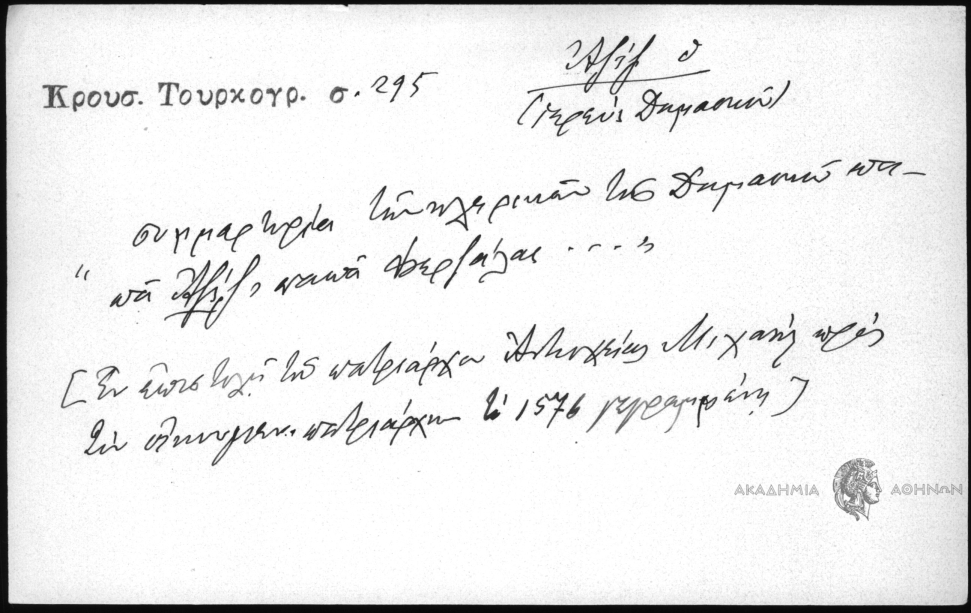 Κρουσ. Τουρκογρ. σ. 295
Ἀζίζ ὁ
(ἱερεύς Δαμασκοῦ)
συμμαρτυρίᾳ τῶν κληρικῶν τῆς Δαμασκοῦ πα-
" πᾶ Ἀζίζ, παπᾶ ... "
[Ἐν ἐπιστολῇ τοῦ πατριάρχου Ἀντιοχείας Μιχαήλ πρός
τόν οἰκουμεν. πατριάρχην τῷ 1576 γεγραμμένη]
ΑΚΑΔΗΜΙΑ ΑΘΗΝΩΝ